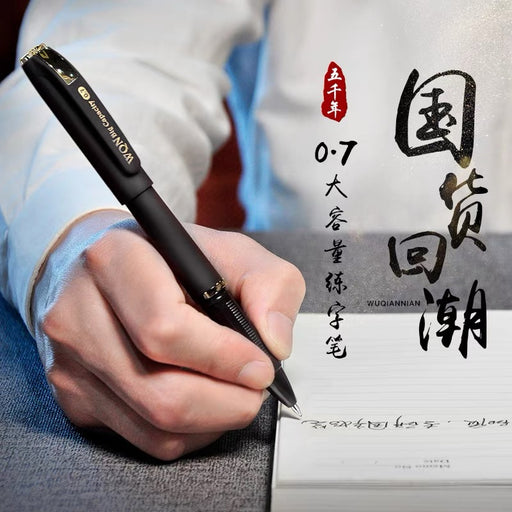 五千年
0.7大容量练字笔
国货回潮
WUQIANNIAN
WQN Big Capacity 0.7
Memo No
Date